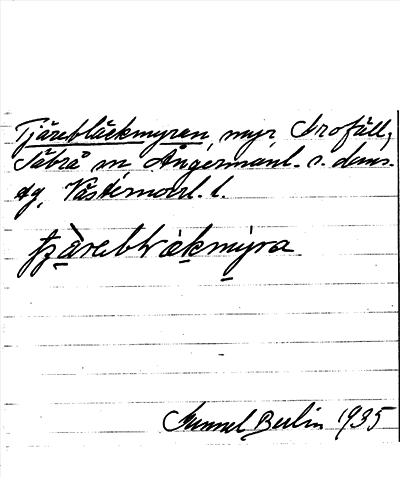 Tjärebläckmyren, myr Avofäll,
Säbrå sn Ångermanl. s. doms.
dg, Västernorrl. l.
tjärebläkmyra
Gunnel Berlin 1935